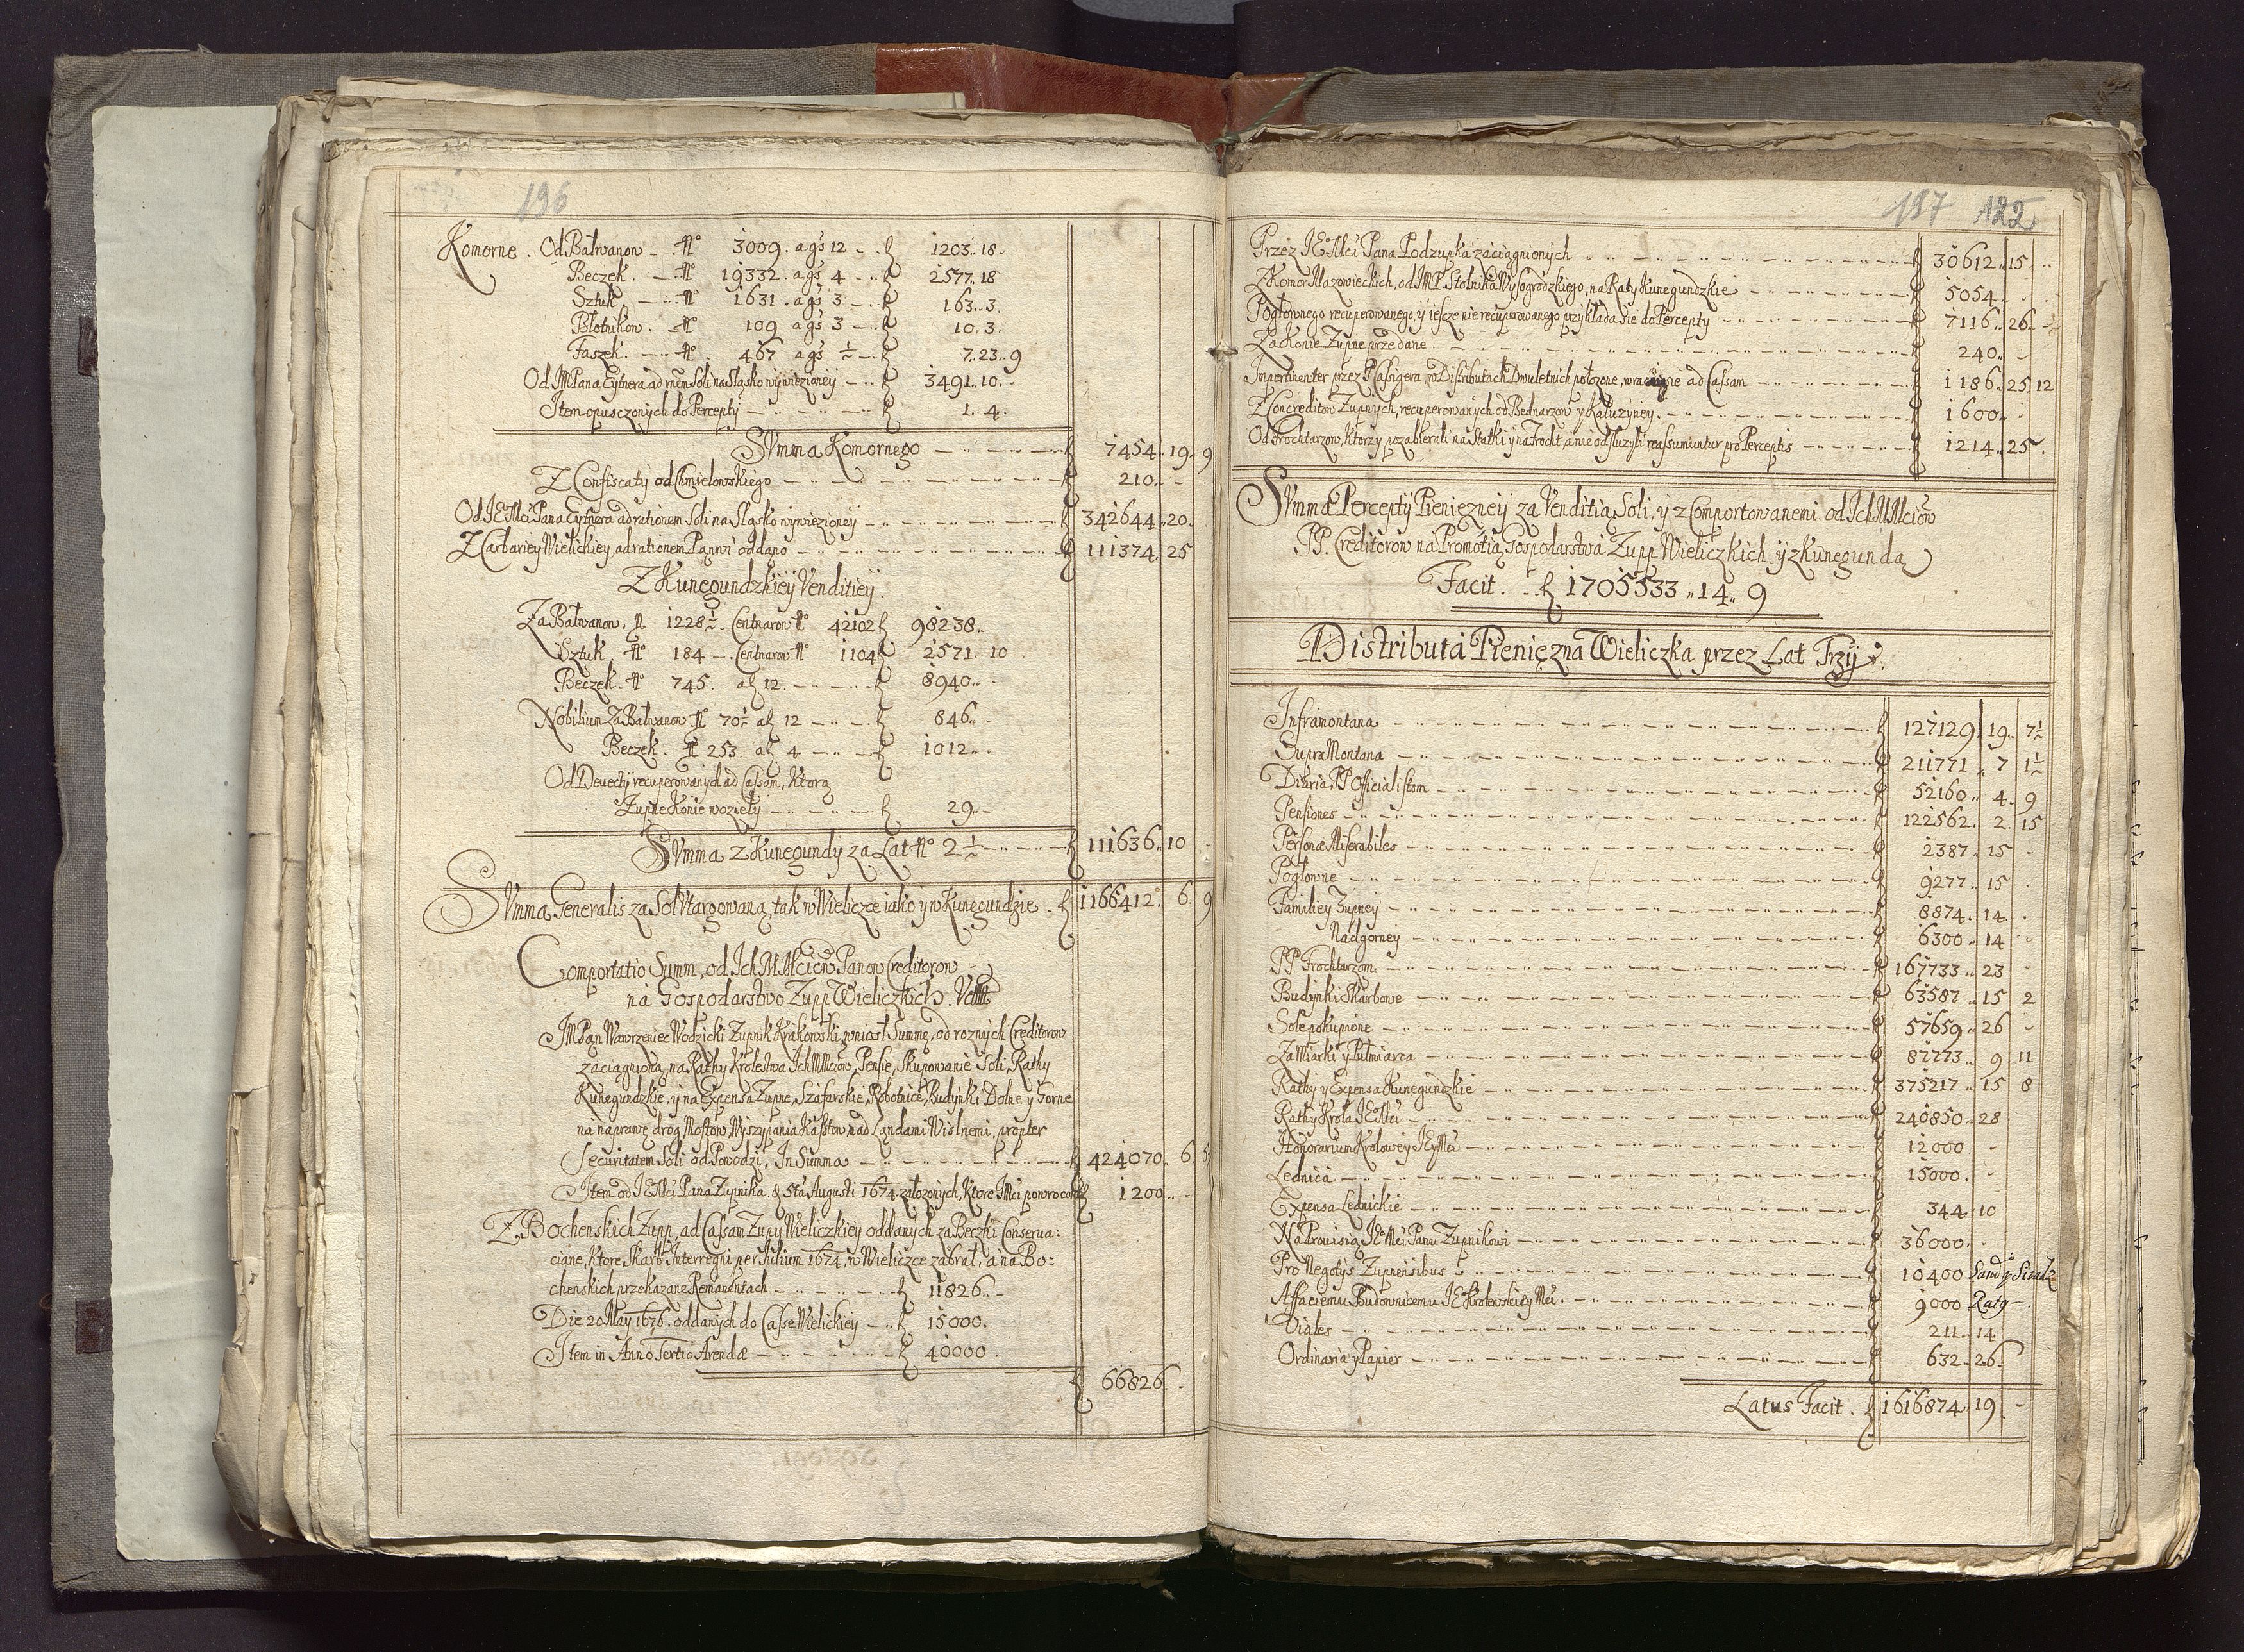 196
Komorne. Od Bałwanow - No 3009. a gs 12 - f 1203 .. 18.
Beczek. - No 19332. a gs 4 - f 2577 .. 18
Sztuk. - No 1631. a gs 3 - f 163 .. 3.
Błotnikow. - No 109 a gs 3 - f 10. 3.
Faszek. - No. 467 a gs ½ - f 7. 23 .. 9
Od JMPana Eytnera ad rnem Soli na Sląsko wywiezioney - f 3491 .. 10. -
Item opusczonych do Percepty - f 1 .. 4.
Summa Komornego - f 7454. 19. 9
Z Confiscaty od Chmielowskiego - f 210. -
Od JEMci Pana Eytnera ad rationem Soli na Sląsko wywiezioney - f 342644. 20.
Z Carbariey Wielickiey, ad rationem Panwi oddano - f 111374. 25
Z Kunegundzkiey Venditiey.
Za Bałwanow. No 1228½. Centnarow No 42102 f 98238 ..
Sztuk. No 184 - Centnarow No 1104 f 2571. 10
Beczek. No 745. a f 12. - f 8940 .. -
Nobilium Za Bałwanow No 70½ a f 12 - f 846 .. -
Beczek. No 253. a f 4 - f 1012 .. -
Od Devecty recuperowanych ad Cassam, Ktorą
Zupne Konie wozieły - f 29 .. -
Summa z Kunegundy za Lat No 2½ - f 111636. 10 -
Summa Generalis za Sol Utargowaną, tak w Wieliczce iako y w Kunegundzie. f 1166412. 6. 9
Comportatio Summ, od Ich MMciow Panow Creditorow
na Gospodarstwo Zupp Wieliczkich.
JMPan Wawrzeniec Wodzicki Zupnik Krakowski, wniosł Summę, od roznych Creditorow
zaciągnioną, na Rathy Krolestwa Ich MMciow, Pensie, Skupowanie Soli, Rathy
Kunegundzkie, y na Expensa Zupne, Szafarskie, Robotnice, Budynki Dolne y Gorne
na naprawę drog, Mostow, Wyszypania Kasztow, nad Lądami Wislnemi, propter
Securitatem Soli od Powodzi, In Summa - f 424070. 6. 5
Item od JEMci Pana Zupnika, 8 sta Augusti 1674. założonych, Ktore JMci powrocono f 1200 .. -
Z Bochenskich Zupp, ad Cassam Zupy Wieliczkiey oddanych za Beczki Conserua:
ciane, Ktore Skarb Interregni per Iulium 1674, w Wieliczce zabrał, a na Bo:
chenskich przekazane Remanentach - f 11826 .. -
Die 20 May 1676. oddanych do Casse Wielickiey - f 15000.
Item in Anno Tertio Arendæ - f 40000.
f 66826. -
197 122
Przez JEMci Pana Podzupka zaciągnionych - f 30612. 15 ..
Z Komor Mazowieckich, od JMP. Stolnika Wysogrodzkiego, na Raty Kunegundzkie - f 5054. -
Pogłownego recuperowanego, y iescze nie recuperowanego przykłada się do Percepty - f 7116. 26 -
Za Konie Zupne przedane. - f 240 .. -
Impertinenter przez P. Cassigera, w Distributach Dwuletnich położone, wracaią się ad Cassam - f 1186. 25 12
Z Concreditow Zupnych, recuperowanych od Bednarzow y Kałuzyney. - f 1600 .. -
Od Frochtarzow, Ktorzy pozabierali na Statki y na Frocht, a nie odsłużyli reassumuntur pro Perceptis - f 1214. 25.
Summa Percepty Pieniezney za Venditią Soli, y z Comportowanemi od Ich MMciow
PP. Creditorow na Promotią Gospodarstwa Zupp Wieliczkich. y z Kunegundą
Facit. - f 1705533 .. 14 .. 9
Distributa Pieniezna Wieliczka przez Lat Trzy.
Inframontana - f 127129. 19. 7½
Supra Montana - f 211771 .. 7 1½
Dituria PP Officialistom - f 52160 .. 4. 9
Pensiones - f 122562. 2. 15
Personæ Miserabiles - f 2387. 15 -
Pogłowne - f 9277. 15
Familiey Zupney - f 8874. 14.
Nadgorney - f 6300. 14
PP Frochtarzom. - f 167733. 23
Budynki Skarbowe - f 63587. 15 2
Sole pokupione. - f 57659. 26
Za Miarki y Pułmiarca - f 87773. 9 11
Rathy y Expensa Kunegundzkie - f 375217. 15 8
Rathy Krola JEMci - f 240850. 28
Honorarium Krolowey JEyMci - f 12000 -
Lednica - f 15000.
Expensa Lednickie - f 344. 10
Na Prouisią JEMci Panu Zupnikowi - f 36000.
Pro Negotys Zupnensibus - f 10400
Affaciemu Budowniczemu JEKrolewskiey Mci. - f 9000 Raty -
Viales - f 211. 14.
Ordinaria y Papier - f 632. 26.
Latus Facit. f 1616874. 19. -